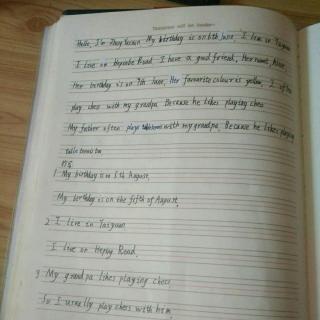 Tomorrow will be
Hello, I'm My birthday is on 6th June. I live in Taiyuan
I live on Road. I have a good friend, Her name, Alice.
Her birthday is on 9th June, Her favourite colour is yellow, I often
play chess with my grandpa. Because he likes playing chess
My father often plays with my grandpa, Because he likes playing
table tennis too
1 My birthday is on 5th August,
My birthday is on the fifth of August,
2 I live in Taiyuan
I live on Heping Road,
3 My grandpa likes playing chess
So I usually play chess with him,